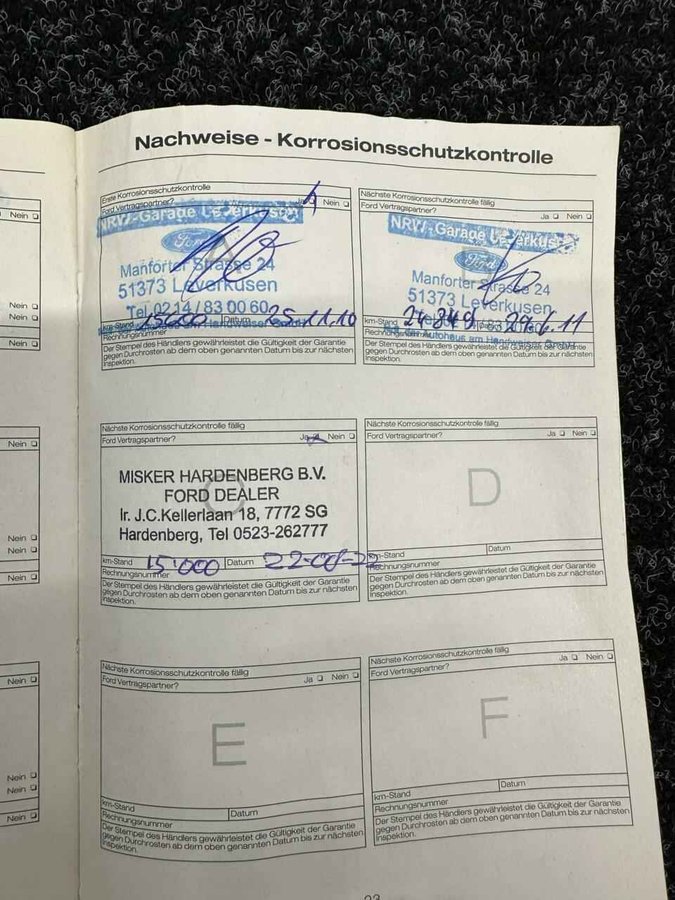 Nachweise - Korrosionsschutzkontrolle
Nein
Nein
Nein
Nein
Erste Korrosionsschutzkontrolle
Ford Vertragspartner? Ja Nein
NRW-Garage Leverkusen
Ford
Manforter Strasse 24
51373 Leverkusen
Tel. 0214/83 00 60
km-Stand 15000 Datum 25.11.10
Rechnungsnummer
Der Stempel des Händlers gewährleistet die Gültigkeit der Garantie
gegen Durchrosten ab dem oben genannten Datum bis zur nächsten
Inspektion.
Nächste Korrosionsschutzkontrolle fällig
Ford Vertragspartner? Ja Nein
NRW-Garage Leverkusen
Ford
Manforter Strasse 24
51373 Leverkusen
km-Stand 24849 27.6.11
Rechnungsnummer
Der Stempel des Händlers gewährleistet die Gültigkeit der Garantie
gegen Durchrosten ab dem oben genannten Datum bis zur nächsten
Inspektion.
Nein
Nein
Nein
Nein
Nächste Korrosionsschutzkontrolle fällig
Ford Vertragspartner? Ja Nein
C
MISKER HARDENBERG B.V.
FORD DEALER
Ir. J.C.Kellerlaan 18, 7772 SG
Hardenberg, Tel 0523-262777
km-Stand 15'000 Datum
Rechnungsnummer
Der Stempel des Händlers gewährleistet die Gültigkeit der Garantie
gegen Durchrosten ab dem oben genannten Datum bis zur nächsten
Inspektion.
Nächste Korrosionsschutzkontrolle fällig
Ford Vertragspartner? Ja Nein
D
km-Stand Datum
Rechnungsnummer
Der Stempel des Händlers gewährleistet die Gültigkeit der Garantie
gegen Durchrosten ab dem oben genannten Datum bis zur nächsten
Inspektion.
Nein
Nein
Nein
Nein
Nächste Korrosionsschutzkontrolle fällig
Ford Vertragspartner? Ja Nein
E
km-Stand Datum
Rechnungsnummer
Der Stempel des Händlers gewährleistet die Gültigkeit der Garantie
gegen Durchrosten ab dem oben genannten Datum bis zur nächsten
Inspektion.
Nächste Korrosionsschutzkontrolle fällig
Ford Vertragspartner? Ja Nein
F
km-Stand Datum
Rechnungsnummer
Der Stempel des Händlers gewährleistet die Gültigkeit der Garantie
gegen Durchrosten ab dem oben genannten Datum bis zur nächsten
Inspektion.